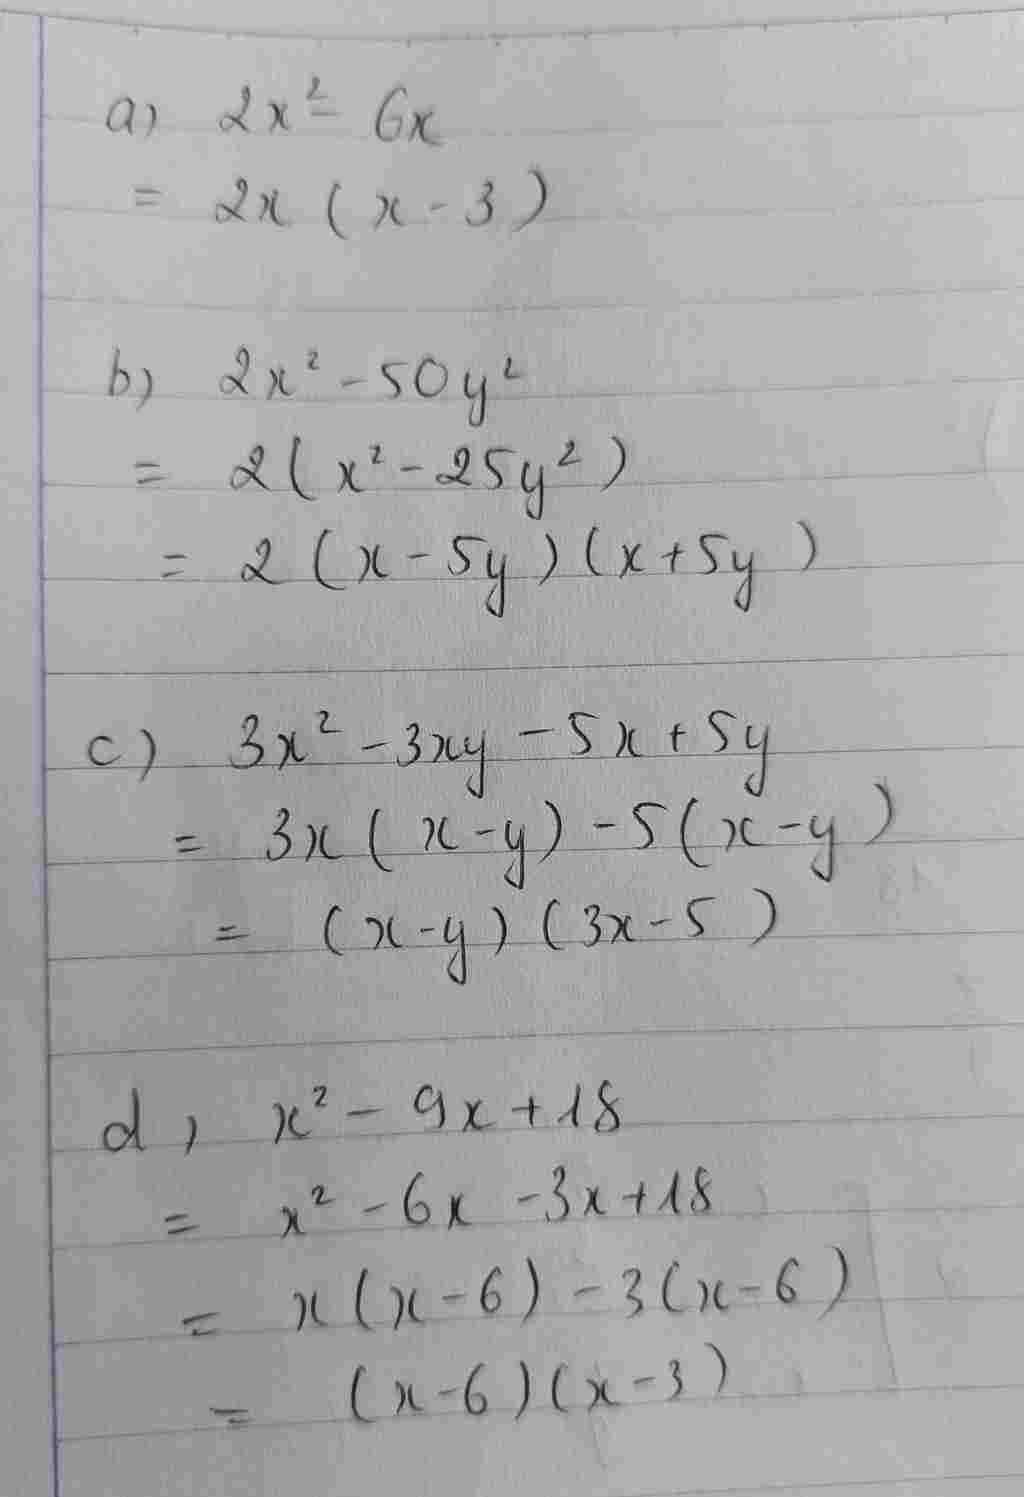 a) 2x² - 6x
= 2x (x - 3)
b) 2x² - 50y²
= 2(x² - 25y²)
= 2 (x - 5y) (x + 5y)
c) 3x² - 3xy - 5x + 5y
= 3x (x - y) - 5(x - y)
= (x - y) (3x - 5)
d) x² - 9x + 18
= x² - 6x - 3x + 18
= x(x - 6) - 3(x - 6)
= (x - 6)(x - 3)